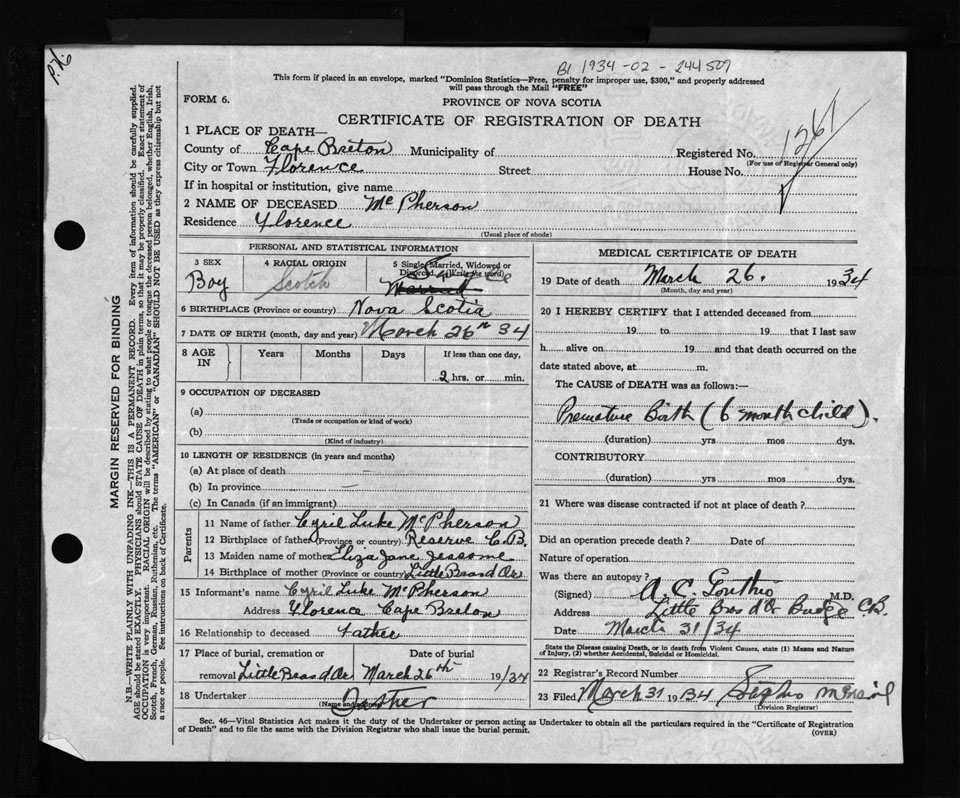 P.X.
B1 1934-02-244507
This form if placed in an envelope, marked "Dominion Statistics—Free, penalty for improper use, $300," and properly addressed
will pass through the Mail "FREE"
FORM 6.
PROVINCE OF NOVA SCOTIA
CERTIFICATE OF REGISTRATION OF DEATH
1261
1 PLACE OF DEATH—
County of Cape Breton Municipality of
Registered No.
(For use of Registrar General only)
City or Town Florence Street House No.
If in hospital or institution, give name
2 NAME OF DECEASED McPherson
Residence Florence
(Usual place of abode)
MARGIN RESERVED FOR BINDING
N.B.—WRITE PLAINLY WITH UNFADING INK—THIS IS A PERMANENT RECORD. Every item of information should be carefully supplied.
AGE should be stated EXACTLY. PHYSICIANS should STATE CAUSE OF DEATH in plain terms, so that it may be properly classified. Exact statement of
OCCUPATION is very important. RACIAL ORIGIN will be described by stating to what people or tongue the deceased person belonged, whether English, Irish,
Scotch, French, German, Russian, Ruthenian, etc. The terms "AMERICAN" or "CANADIAN" SHOULD NOT BE USED as they express citizenship but not
a race or people. See instructions on back of Certificate.
PERSONAL AND STATISTICAL INFORMATION
3 SEX
Boy
4 RACIAL ORIGIN
Scotch
5 Single, Married, Widowed or
Divorced (Write the word)
Married
6 BIRTHPLACE (Province or country) Nova Scotia
7 DATE OF BIRTH (month, day and year) March 26th 34
8 AGE IN
Years Months Days If less than one day,
2 hrs. or min.
9 OCCUPATION OF DECEASED
(a)
(Trade or occupation or kind of work)
(b)
(Kind of industry)
10 LENGTH OF RESIDENCE (in years and months)
(a) At place of death —
(b) In province —
(c) In Canada (if an immigrant)
Parents
11 Name of father Cyril Luke McPherson
12 Birthplace of father (Province or country) Reserve C.B.
13 Maiden name of mother Eliza Jane Jessome
14 Birthplace of mother (Province or country) Little Bras d Or
15 Informant's name Cyril Luke McPherson
Address Florence Cape Breton
16 Relationship to deceased Father
17 Place of burial, cremation or Date of burial
removal Little Bras d Or March 26th 19/34
18 Undertaker
(Name and address)
MEDICAL CERTIFICATE OF DEATH
19 Date of death March 26. 1934
(Month, day and year)
20 I HEREBY CERTIFY that I attended deceased from
19 to 19 that I last saw
h alive on 19 and that death occurred on the
date stated above, at m.
The CAUSE of DEATH was as follows:—
Premature Birth (6 month child).
(duration) yrs mos dys.
CONTRIBUTORY
(duration) yrs mos dys.
21 Where was disease contracted if not at place of death?
Did an operation precede death? Date of
Nature of operation
Was there an autopsy?
(Signed) A. C. M.D.
Address Little Bras d'Or Bridge C.B.
Date March 31/34
State the Disease causing Death, or in death from Violent Causes, state (1) Means and Nature
of Injury, (2) whether Accidental, Suicidal or Homicidal.
22 Registrar's Record Number
23 Filed March 31 1934
(Division Registrar)
Sec. 46—Vital Statistics Act makes it the duty of the Undertaker or person acting as Undertaker to obtain all the particulars required in the "Certificate of Registration
of Death" and to file the same with the Division Registrar who shall issue the burial permit.
(OVER)